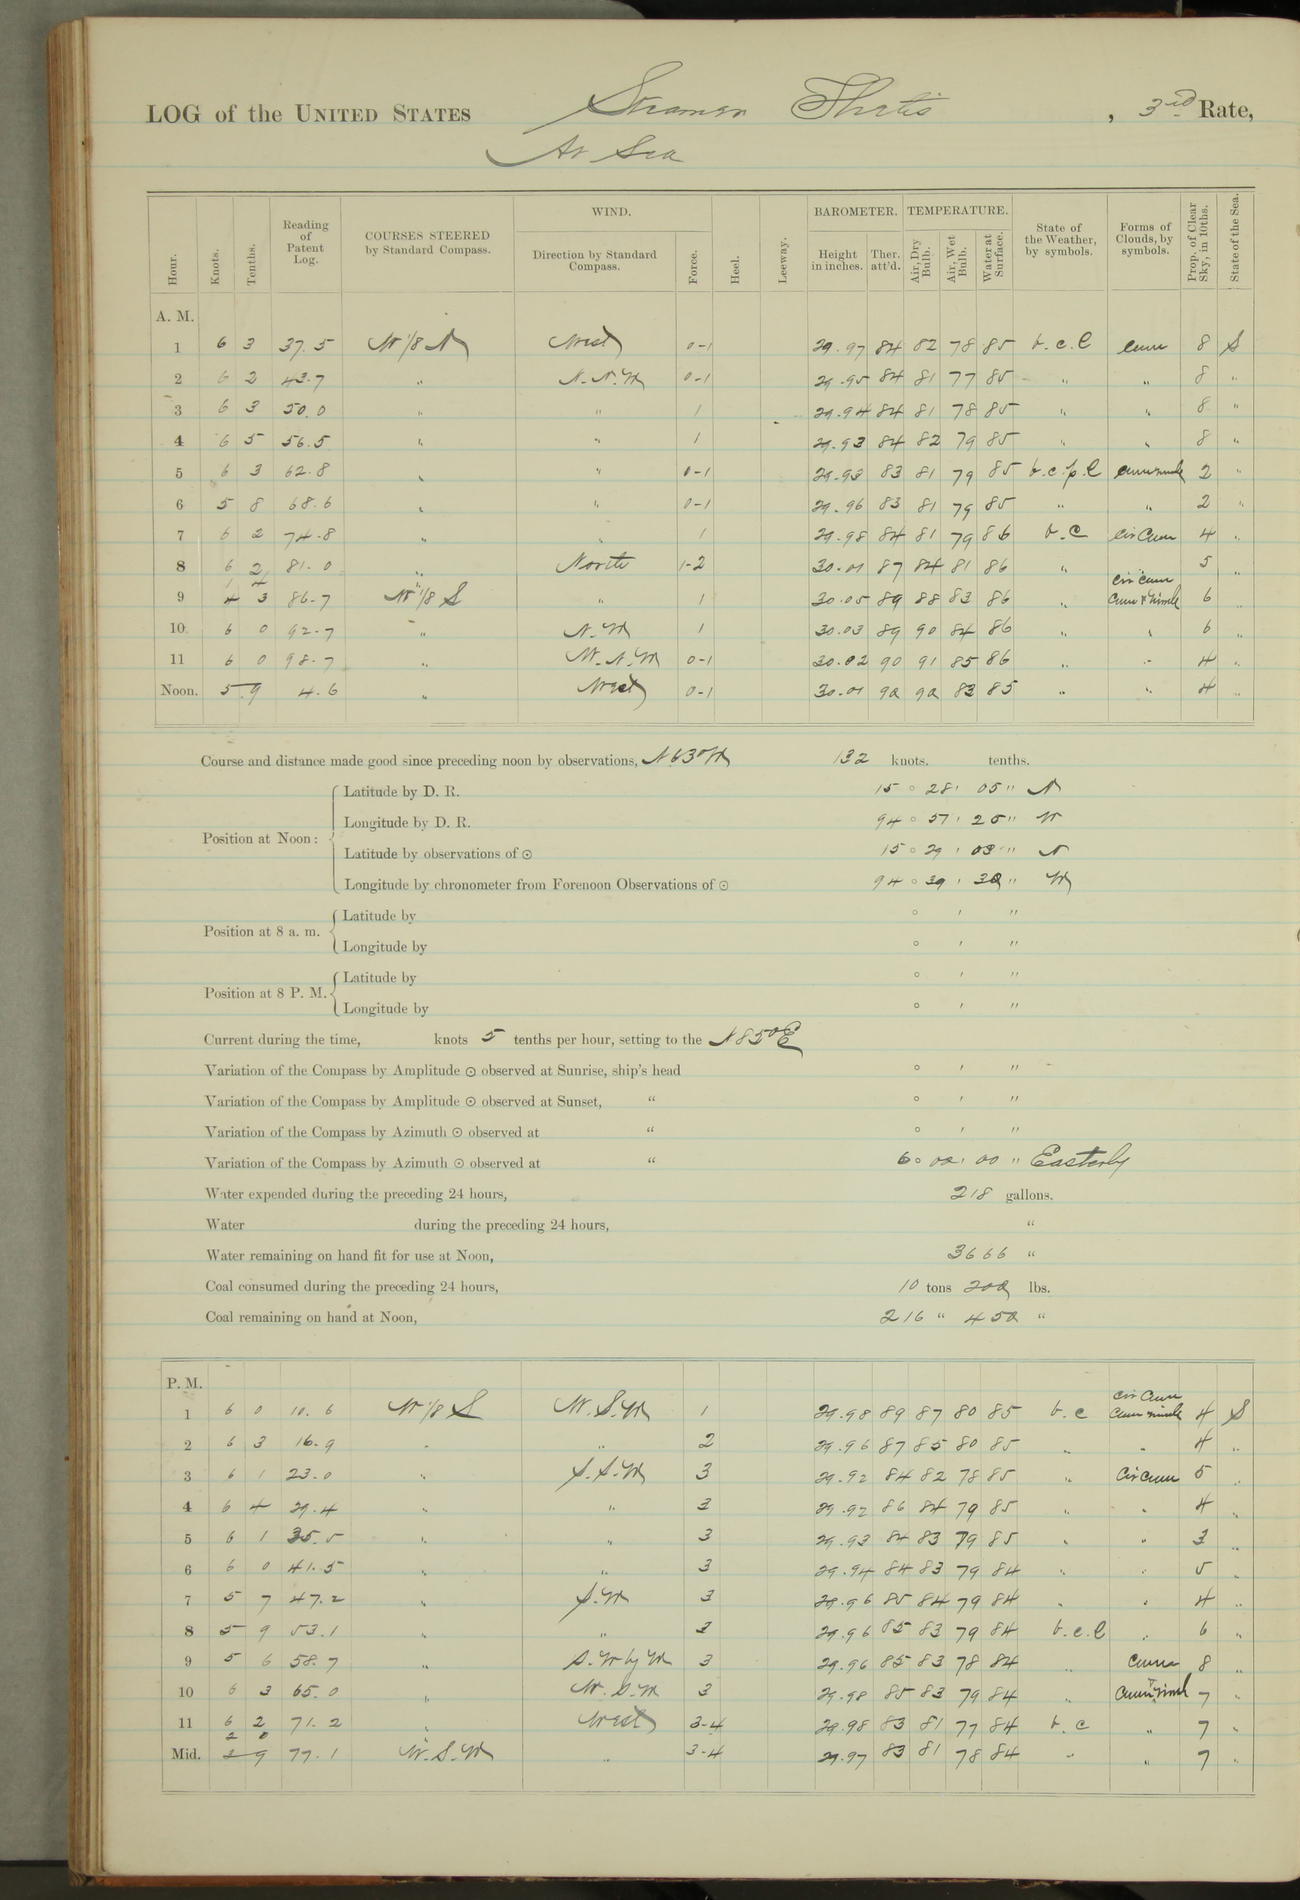 LOG of the UNITED STATES Steamer Thetis , 3rd Rate,
At Sea
Hour. Knots. Tenths. Reading of Patent Log. COURSES STEERED by Standard Compass. WIND. Direction by Standard Compass. Force. Heel. Leeway. BAROMETER. Height in inches. Ther. att'd. TEMPERATURE. Air, Dry Bulb. Air, Wet Bulb. Water at Surface. State of the Weather, by symbols. Forms of Clouds, by symbols. Prop. of Clear Sky, in 10ths. State of the Sea.
A. M.
1 6 3 37.5 W 1/8 N West 0-1 29.97 84 82 78 85 b.c.l Cum 8 S
2 6 2 43.7 " N.N.W 0-1 29.95 84 81 77 85 " " 8 "
3 6 3 50.0 " " 1 29.94 84 81 78 85 " " 8 "
4 6 5 56.5 " " 1 29.93 84 82 79 85 " " 8 "
5 6 3 62.8 " " 0-1 29.93 83 81 79 85 b.c.p.l Cum nimb 2 "
6 5 8 68.6 " " 0-1 29.96 83 81 79 85 " " 2 "
7 6 2 74.8 " " 1 29.98 84 81 79 86 b.c Cir Cum 4 "
8 6 2 81.0 " North 1-2 30.01 87 84 81 86 " 5 "
1 4 Cir Cum
9 4 3 86.7 W 1/8 S " 1 30.05 89 88 83 86 " Cum & Nimb 6 "
10 6 0 92.7 " N.W 1 30.03 89 90 84 86 " " 6 "
11 6 0 98.7 " W.N.W 0-1 30.02 90 91 85 86 " " 4 "
Noon. 5 9 4.6 " West 0-1 30.01 90 90 83 85 " " 4 "
Course and distance made good since preceding noon by observations, N 63° W 132 knots. tenths.
Position at Noon:
Latitude by D. R. 15 ° 28 ' 05 " N
Longitude by D. R. 94 ° 57 ' 20 " W
Latitude by observations of ☉ 15 ° 29 ' 03 " N
Longitude by chronometer from Forenoon Observations of ☉ 94 ° 39 ' 30 " W
Position at 8 a. m.
Latitude by ° ' "
Longitude by ° ' "
Position at 8 P. M.
Latitude by ° ' "
Longitude by ° ' "
Current during the time, knots 5 tenths per hour, setting to the N 85° E
Variation of the Compass by Amplitude ☉ observed at Sunrise, ship's head ° ' "
Variation of the Compass by Amplitude ☉ observed at Sunset, " ° ' "
Variation of the Compass by Azimuth ☉ observed at " ° ' "
Variation of the Compass by Azimuth ☉ observed at " 6 ° 00 ' 00 " Easterly
Water expended during the preceding 24 hours, 218 gallons.
Water during the preceding 24 hours, "
Water remaining on hand fit for use at Noon, 3666 "
Coal consumed during the preceding 24 hours, 10 tons 200 lbs.
Coal remaining on hand at Noon, 216 " 450 "
P. M.
Cir Cum
1 6 0 10.6 W 1/8 S W.S.W 1 29.98 89 87 80 85 b.c Cum nimb 4 S
2 6 3 16.9 " " 2 29.96 87 85 80 85 " " 4 "
3 6 1 23.0 " S.S.W 3 29.92 84 82 78 85 " Cir Cum 5 "
4 6 4 29.4 " " 3 29.92 86 84 79 85 " " 4 "
5 6 1 35.5 " " 3 29.93 84 83 79 85 " " 3 "
6 6 0 41.5 " " 3 29.94 84 83 79 84 " " 5 "
7 5 7 47.2 " S.W 3 29.96 85 84 79 84 " " 4 "
8 5 9 53.1 " " 3 29.96 85 83 79 84 b.c.l " 6 "
9 5 6 58.7 " S.W by W 3 29.96 85 83 78 84 " Cum 8 "
10 6 3 65.0 " W.S.W 3 29.98 85 83 79 84 " Cum & Nimb 7 "
11 6 2 71.2 " West 3-4 29.98 83 81 77 84 b.c " 7 "
2 0
Mid. 3 9 77.1 W.S.W " 3-4 29.97 83 81 78 84 " " 7 "